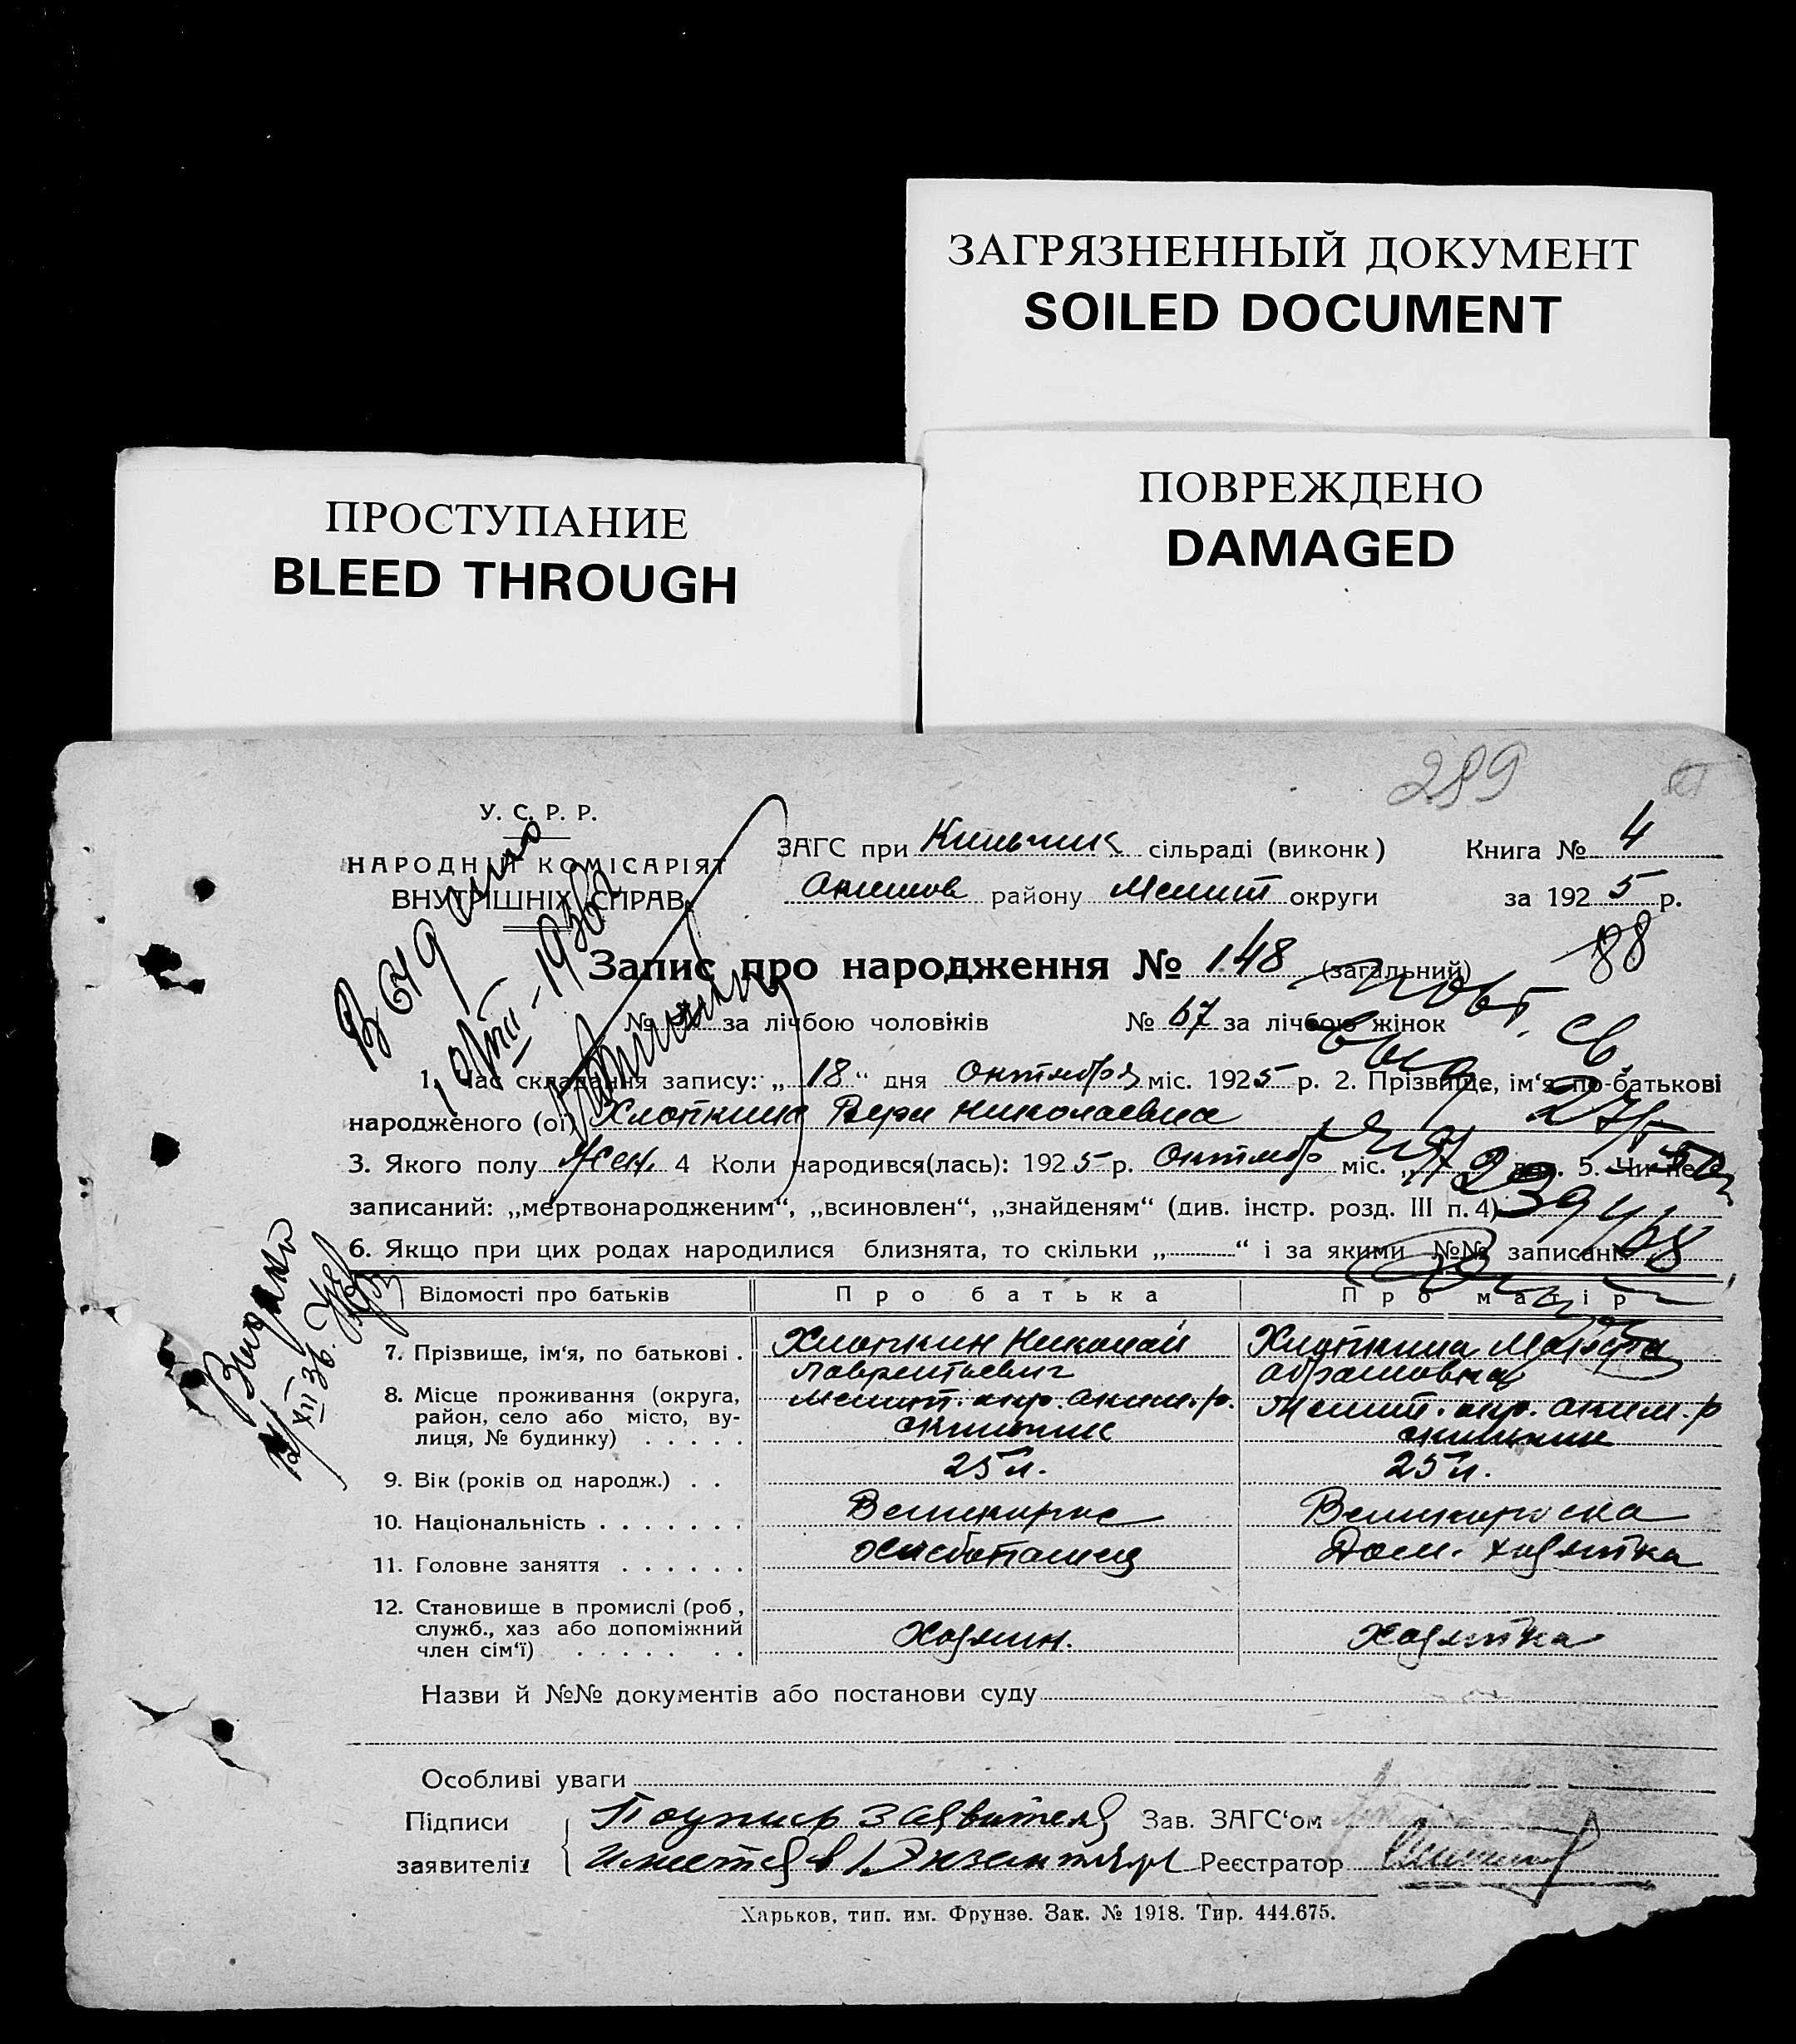 ЗАГРЯЗНЕННЫЙ ДОКУМЕНТ
SOILED DOCUMENT
ПРОСТУПАНИЕ
BLEED THROUGH
ПОВРЕЖДЕНО
DAMAGED
289
У. С. Р. Р.
НАРОДНІЙ КОМІСАРІЯТ
ВНУТРІШНІХ СПРАВ
ЗАГС при сільраді (виконк)
Книга № 4
Аким району Мелит округи
за 1925 р.
88
Запис про народження № 148 (загальний)
№ за лічбою чоловіків № 67 за лічбою жінок
1. Час складання запису: „ 18 “ дня Октября міс. 1925 р. 2. Прізвище, ім‘я, по-батькові
народженого (ої) Хлопкина Вера Николаевна
3. Якого полу Жен. 4 Коли народився(лась): 1925 р. Октябр міс. 5. Чи не
записаний: „мертвонародженим“, „всиновлен“, „знайденям“ (див. інстр. розд. III п. 4)
6. Якщо при цих родах народилися близнята, то скільки „ “ і за якими №№ записані
Відомості про батьків
Про батька
Про матір
7. Прізвище, ім‘я, по батькові .
Хлопкин Николай
Лаврентьевич
Хлопкина Марфа
Абрамовна
8. Місце проживання (округа,
район, село або місто, ву-
лиця, № будинку) . . . . .
Мелит. окр. Аким. р.
Мелит. окр. Аким. р
9. Вік (років од народж.) . .
25 л.
25 л.
10. Національність . . . . . . .
Великорос
Великороска
11. Головне заняття . . . . . .
Хлебопашец
Дом. хозяйка
12. Становище в промислі (роб.,
служб., хаз або допоміжний
член сім‘ї) . . . . . . .
Хозяин.
Хозяйка
Назви й №№ документів або постанови суду
Особливі уваги
Підписи
заявителів
Подпись заявителя
имеется в 1 Экземпляре
Зав. ЗАГС‘ом
Реєстратор
Харьков, тип. им. Фрунзе. Зак. № 1918. Тир. 444.675.